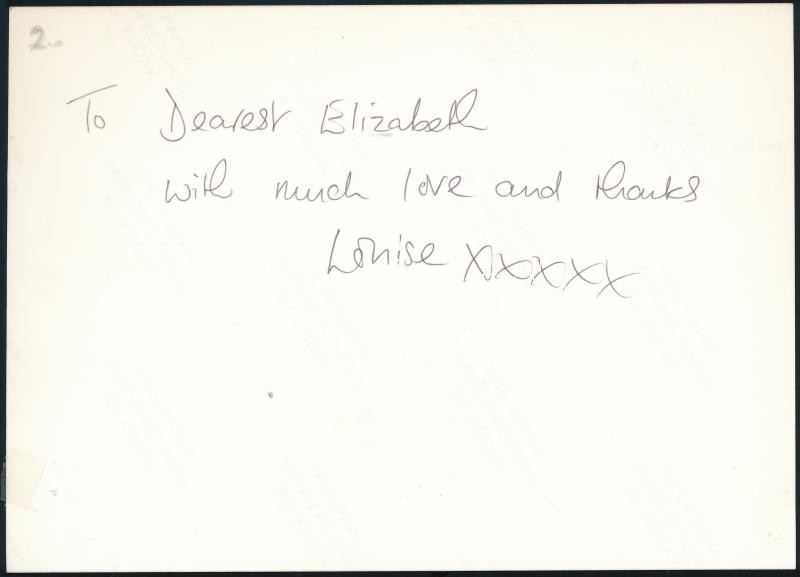 2
To Dearest Elizabeth
with much love and thanks
Louise XXXXX
THIS PAPER
MANUFACTURED
BY KODAK